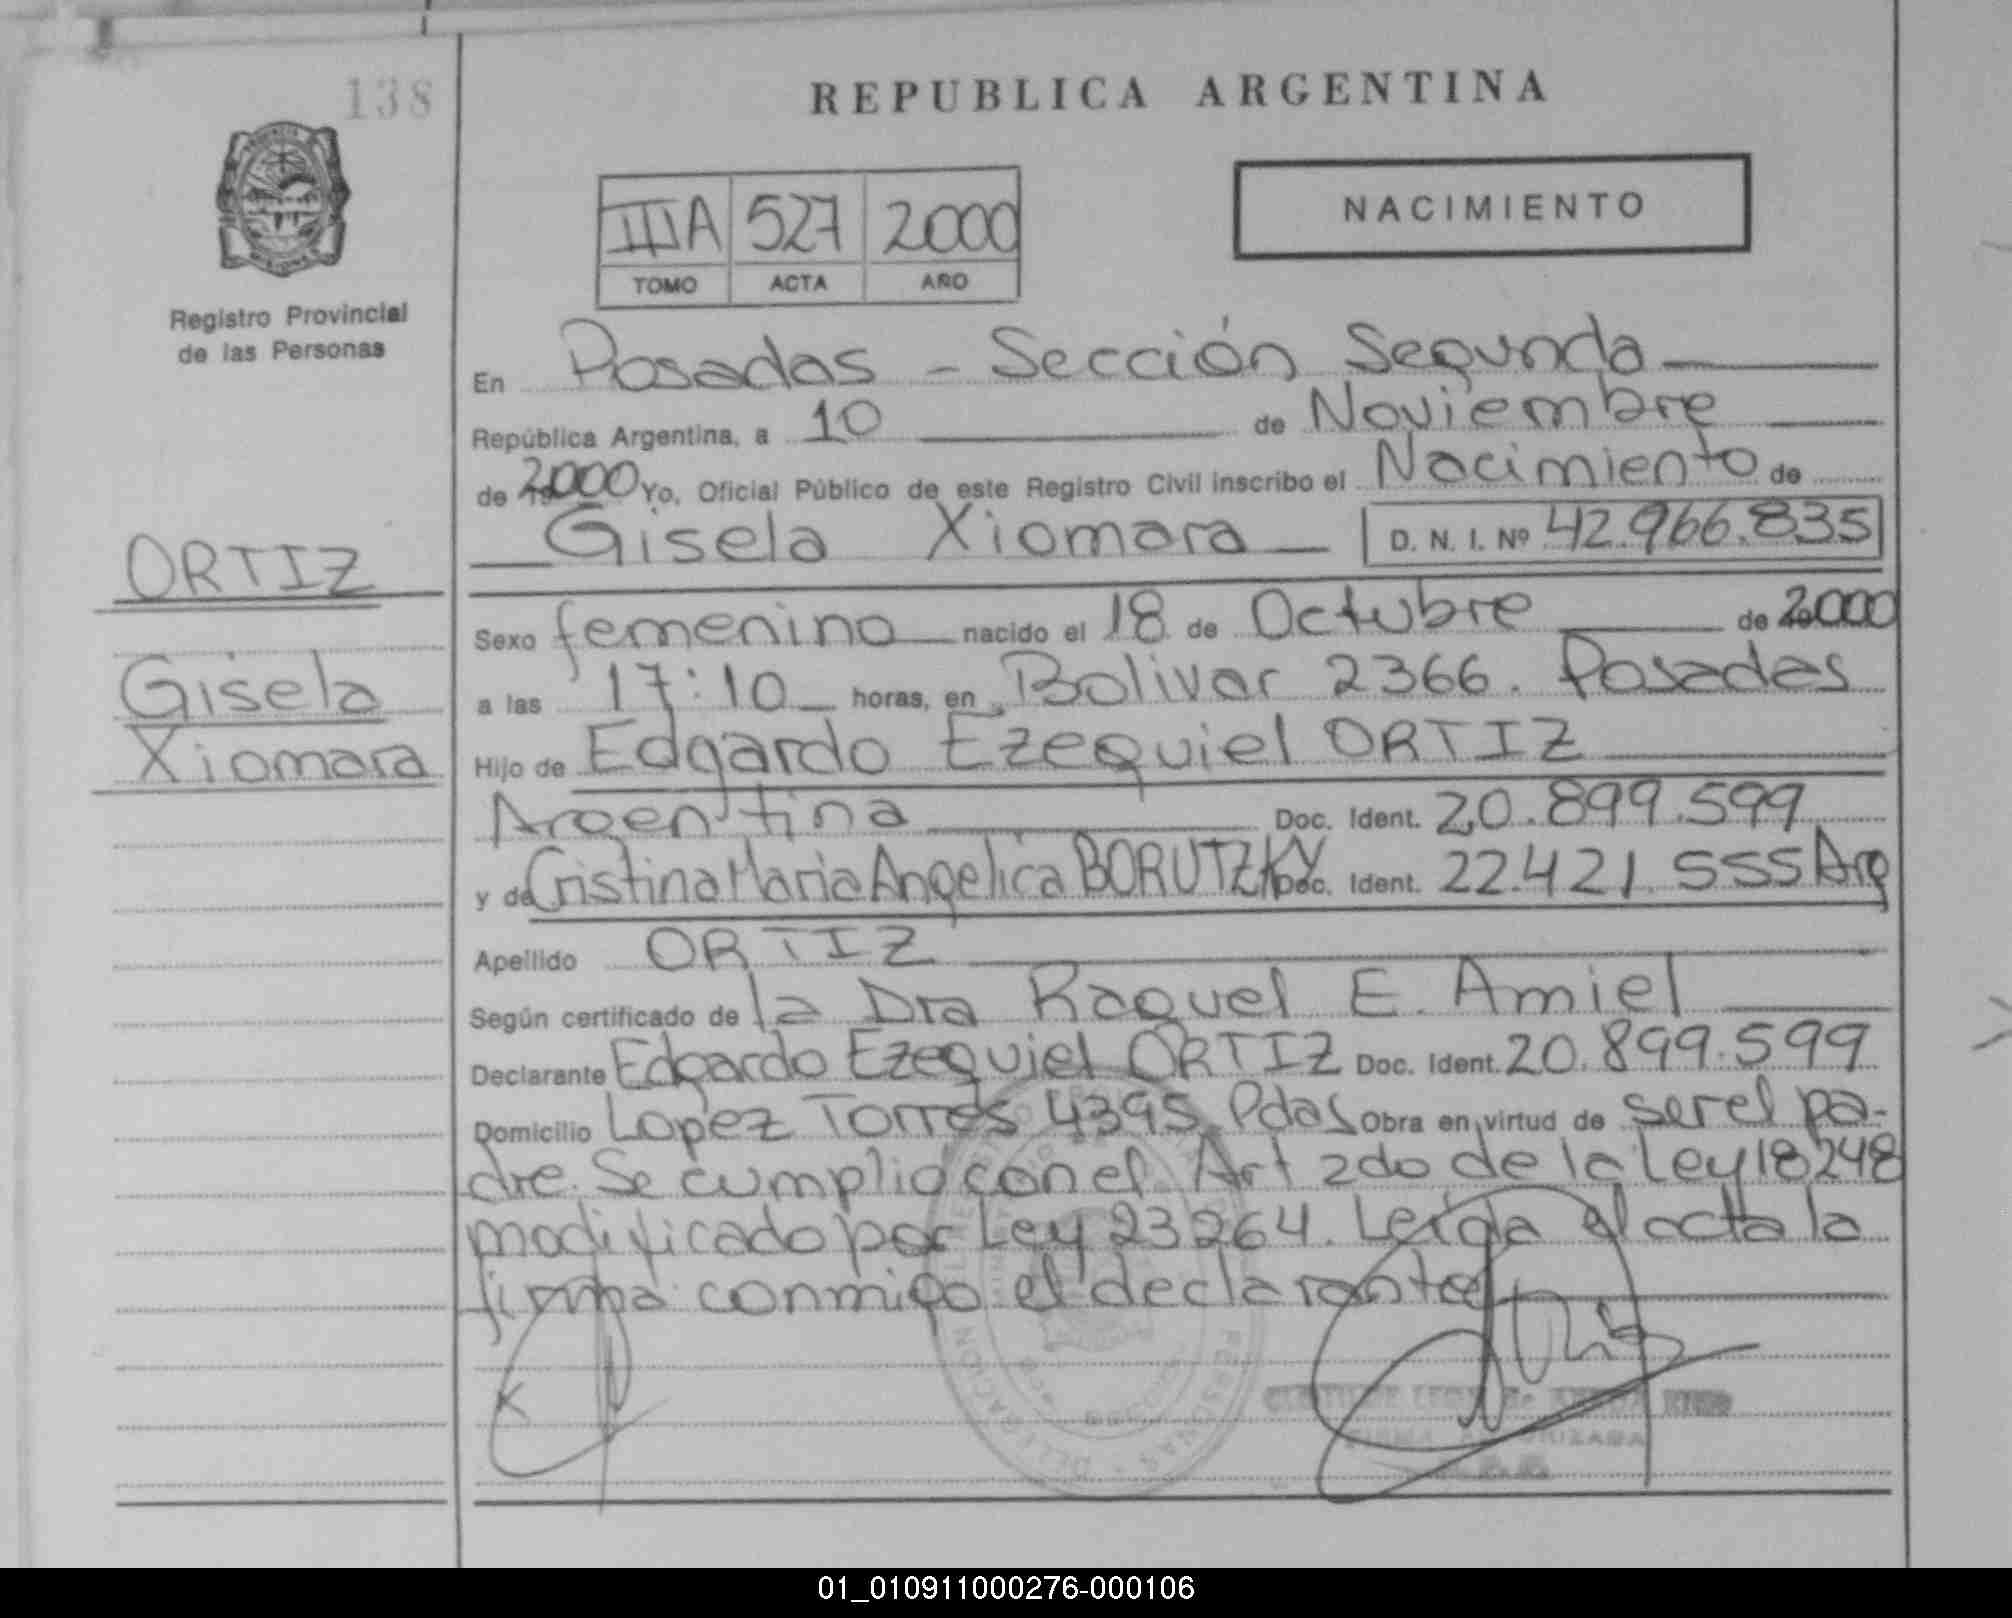 138
REPUBLICA ARGENTINA
NACIMIENTO
IIIA 527 2000
TOMO ACTA AÑO
Registro Provincial
de las Personas
En Posadas - Sección Segunda
República Argentina, a 10 de Noviembre
de 2000 Yo, Oficial Público de este Registro Civil inscribo el Nacimiento de
Gisela Xiomara D. N. I. Nº 42.966.835
ORTIZ
Gisela
Xiomara
Sexo femenino nacido el 18 de Octubre de 2000
a las 17:10 horas, en Bolivar 2366. Posadas
Hijo de Edgardo Ezequiel ORTIZ
Argentina Doc. Ident. 20.899.599
y de Cristina Maria Angelica BORUTZKY Doc. Ident. 22.421.555 Arg
Apellido ORTIZ
Según certificado de la Dra Raquel E. Amiel
Declarante Edgardo Ezequiel ORTIZ Doc. Ident. 20.899.599
Domicilio Lopez Torres 4395 Pdas Obra en virtud de ser el pa-
dre. Se cumplio con el Art 2do de la Ley 18248
modificado por Ley 23264. Leida el acta la
firma conmigo el declarante
X
FIRMA AUTORIZADA
01_010911000276-000106